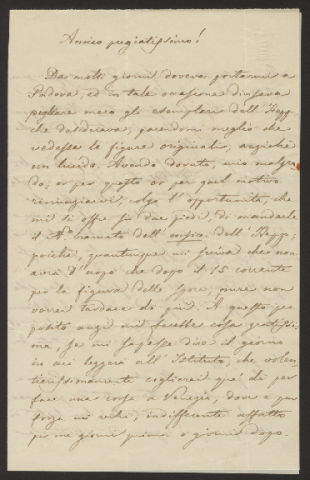 Amico pregiatissimo!
Da molti giorni doveva portarmi a
Padova, ed in tale occasione dingeva
pigliare meco gli esemplari dell'
che desiderava, parendomi meglio che
vedesse le figure originali, anzichè
un lucido. Avendo dovuto, mio malgra-
do, or per questo or per quel motivo
rinunziarvi, colgo l'opportunità, che
mi si offre su due piedi, di mandarle
il N. bramato dell'
poichè, quantunque mi scriva che non
avrà d'uopo che dopo il 15 corrente
per la figura delle spore, pure non
vorrei tardare di più. A questo pro-
posito anzi mi farebbe cosa gratissi-
ma, se mi sapesse dire il giorno
in cui leggerà all'Istituto, che volen-
tierissimamente coglierei quel dì per
fare una corsa a Venezia, dove a
forza mi indifferente affatto
per me giorni prima o giorni dopo.